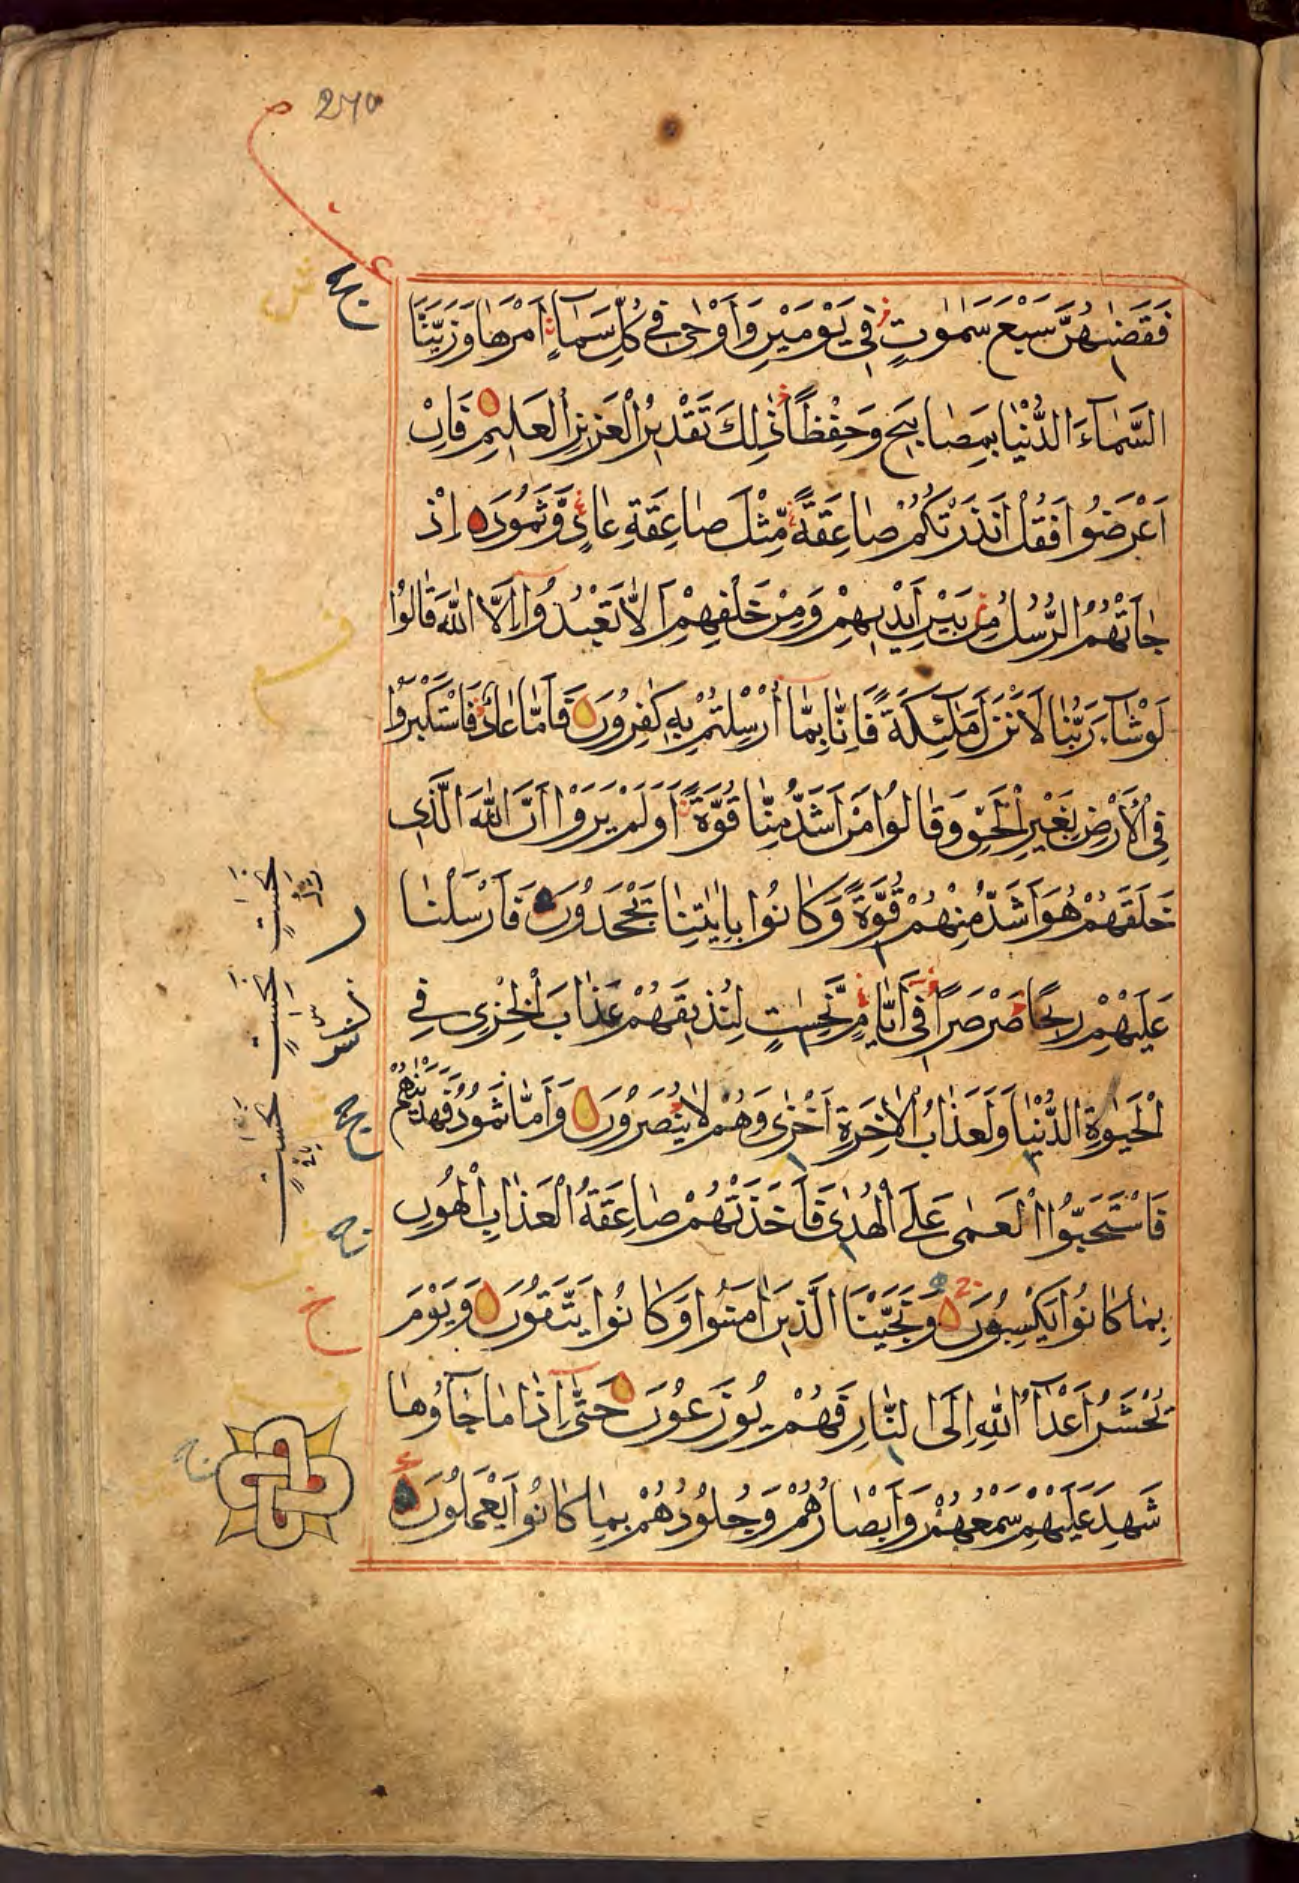 270
فَقَضٰىهُنَّ سَبْعَ سَمٰوٰتٍ فِي يَوْمَيْنِ وَاَوْحٰى فِي كُلِّ سَمَاءٍ اَمْرَهَا وَزَيَّنَّا
السَّمَاءَ الدُّنْيَا بِمَصَابِيحَ وَحِفْظًا ذٰلِكَ تَقْدِيرُ الْعَزِيزِ الْعَلِيمِ فَاِنْ
اَعْرَضُوا فَقُلْ اَنْذَرْتُكُمْ صَاعِقَةً مِّثْلَ صَاعِقَةِ عَادٍ وَّثَمُودَ اِذْ
جَاءَتْهُمُ الرُّسُلُ مِنْ بَيْنِ اَيْدِيهِمْ وَمِنْ خَلْفِهِمْ اَلَّا تَعْبُدُوا اِلَّا اللّٰهَ قَالُوا
لَوْ شَاءَ رَبُّنَا لَاَنْزَلَ مَلٰئِكَةً فَاِنَّا بِمَا اُرْسِلْتُمْ بِهِ كٰفِرُونَ فَاَمَّا عَادٌ فَاسْتَكْبَرُوا
فِي الْاَرْضِ بِغَيْرِ الْحَقِّ وَقَالُوا مَنْ اَشَدُّ مِنَّا قُوَّةً اَوَلَمْ يَرَوْا اَنَّ اللّٰهَ الَّذِي
خَلَقَهُمْ هُوَ اَشَدُّ مِنْهُمْ قُوَّةً وَكَانُوا بِاٰيٰتِنَا يَجْحَدُونَ فَاَرْسَلْنَا
عَلَيْهِمْ رِيحًا صَرْصَرًا فِي اَيَّامٍ نَّحِسَاتٍ لِنُذِيقَهُمْ عَذَابَ الْخِزْيِ فِي
الْحَيٰوةِ الدُّنْيَا وَلَعَذَابُ الْاٰخِرَةِ اَخْزٰى وَهُمْ لَا يُنْصَرُونَ وَاَمَّا ثَمُودُ فَهَدَيْنٰهُمْ
فَاسْتَحَبُّوا الْعَمٰى عَلَى الْهُدٰى فَاَخَذَتْهُمْ صَاعِقَةُ الْعَذَابِ الْهُونِ
بِمَا كَانُوا يَكْسِبُونَ وَنَجَّيْنَا الَّذِينَ اٰمَنُوا وَكَانُوا يَتَّقُونَ وَيَوْمَ
يُحْشَرُ اَعْدَاءُ اللّٰهِ اِلَى النَّارِ فَهُمْ يُوزَعُونَ حَتّٰى اِذَا مَا جَاؤُهَا
شَهِدَ عَلَيْهِمْ سَمْعُهُمْ وَاَبْصَارُهُمْ وَجُلُودُهُمْ بِمَا كَانُوا يَعْمَلُونَ